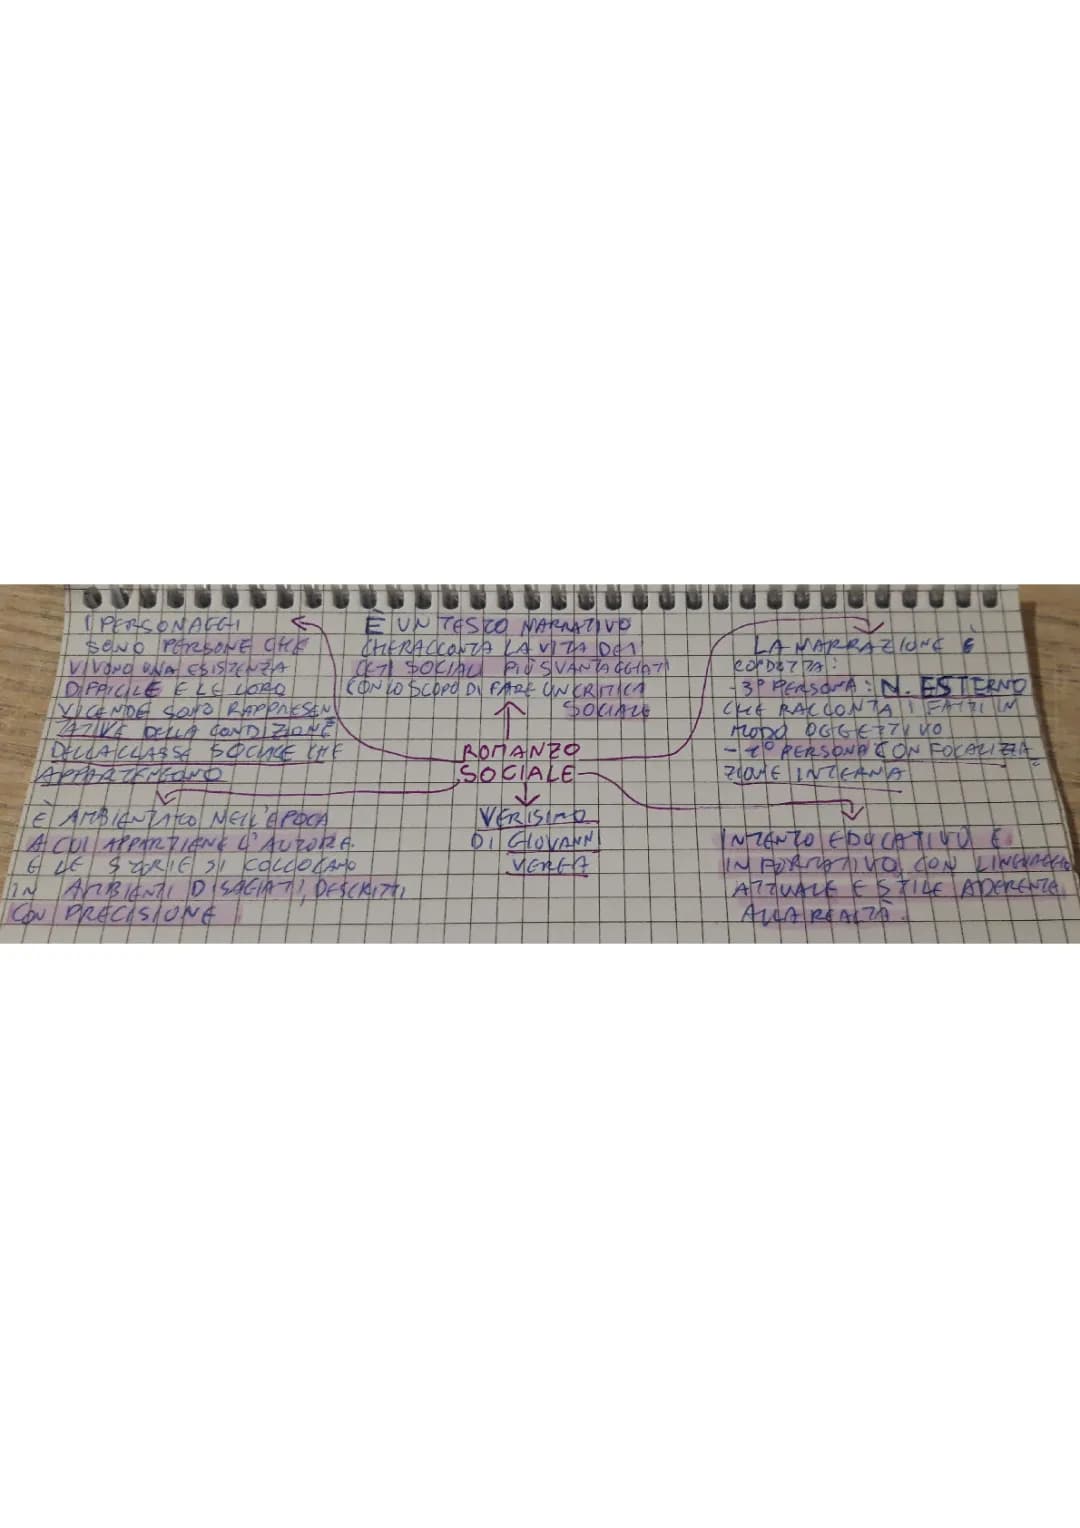 I PERSONAGGI
SONO PERSONE CHE
VIVONO UNA ESISTENZA
DIFFICILE E LE LORO
VICENDE SONO RAPPRESEN
TATIVE DELLA CONDIZIONE
DELLA CLASSE SOCIALE CHE
APPARTENGONO
È UN TESTO NARRATIVO
CHE RACCONTA LA VITA DEI
CETI SOCIALI PIÙ SVANTAGGIATI
CON LO SCOPO DI FARE UN CRITICA
SOCIALE
LA NARRAZIONE È
CONDOTTA:
-3ª PERSONA: N. ESTERNO
CHE RACCONTA I FATTI IN
MODO OGGETTIVO
-1ª PERSONA CON FOCALIZZA
ZIONE INTERNA
ROMANZO
SOCIALE
È AMBIENTATO NELL'EPOCA
A CUI APPARTIENE L'AUTORE
E LE STORIE SI COLLOCANO
IN AMBIENTI DISAGIATI, DESCRITTI
CON PRECISIONE
VERISMO
DI GIOVANNI
VERGA
INTENTO EDUCATIVO E
INFORMATIVO CON LINGUAGGIO
ATTUALE E STILE ADERENTE
ALLA REALTÀ.